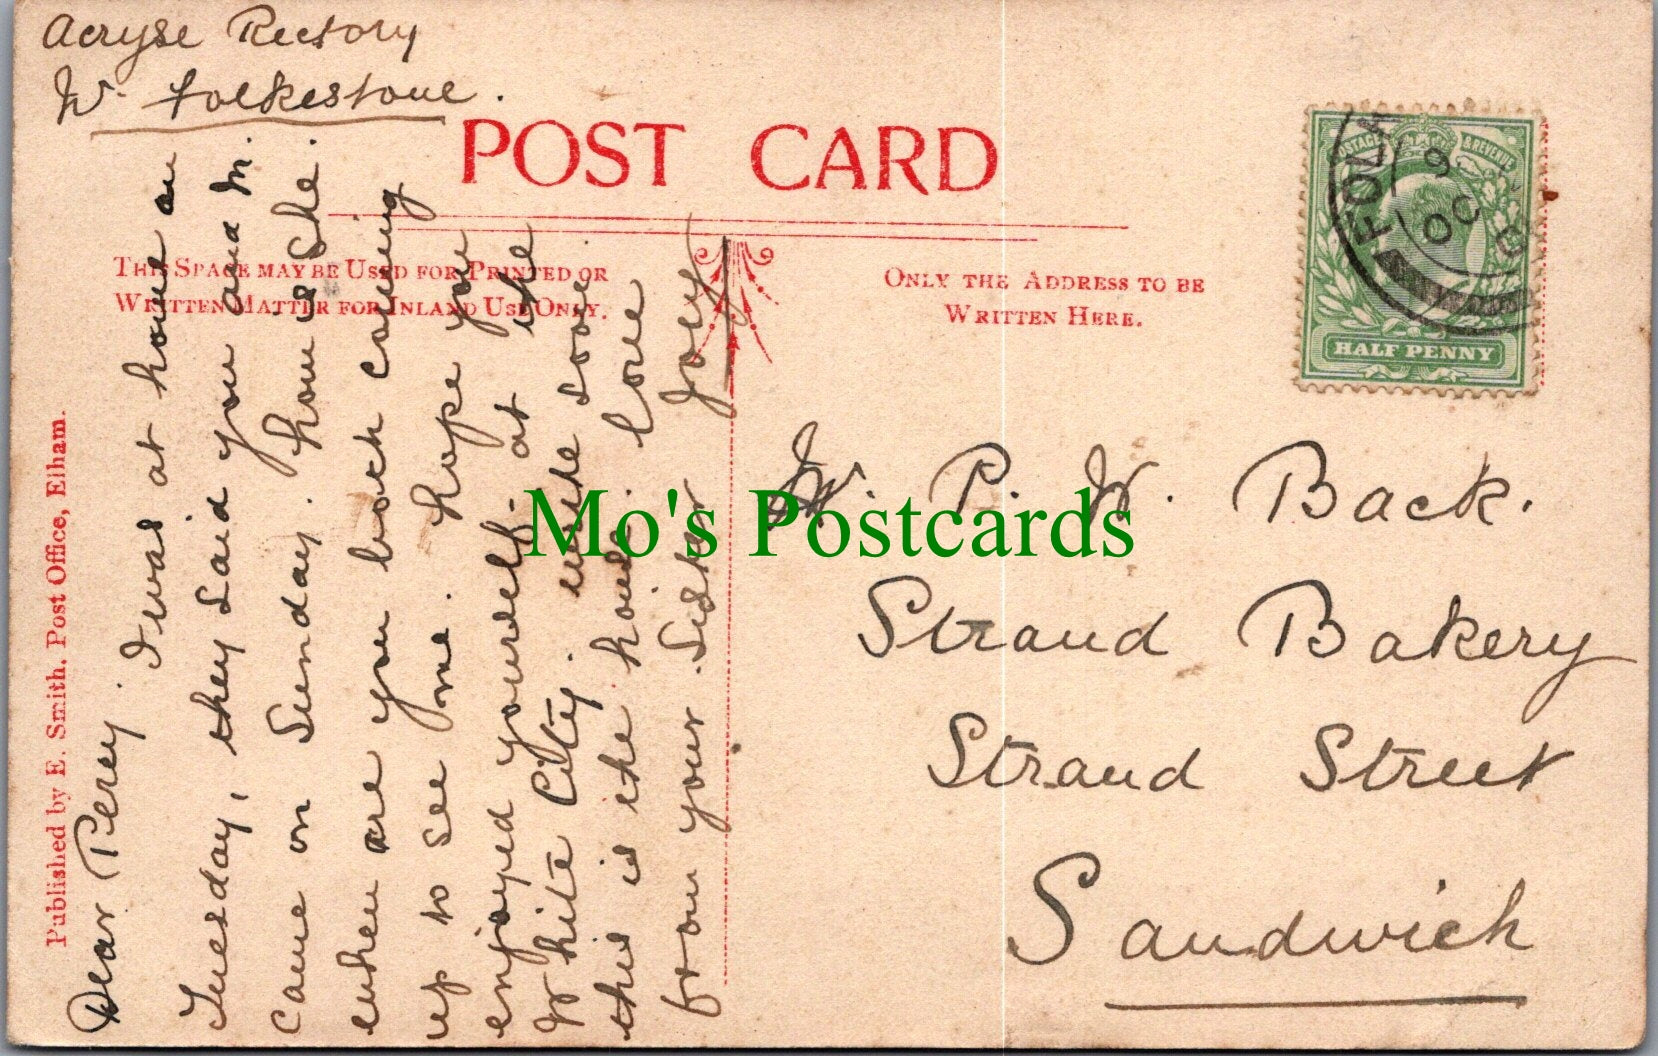 Acryse Rectory
Nr. Folkestone.
POST CARD
THIS SPACE MAY BE USED FOR PRINTED OR
WRITTEN MATTER FOR INLAND USE ONLY.
ONLY THE ADDRESS TO BE
WRITTEN HERE.
POSTAGE & REVENUE
HALF PENNY
FOLK
9
OC
Published by E. Smith, Post Office, Elham.
Dear Percy. I was at home on
Tuesday, they said you and M.
came on Sunday. how is she.
when are you both coming
up to see me. hope you
enjoyed yourself. at the
White City. write soon.
this is the house. love
from your Sister Joey
P. W. Back.
Strand Bakery
Strand Street
Sandwich
Mo's Postcards